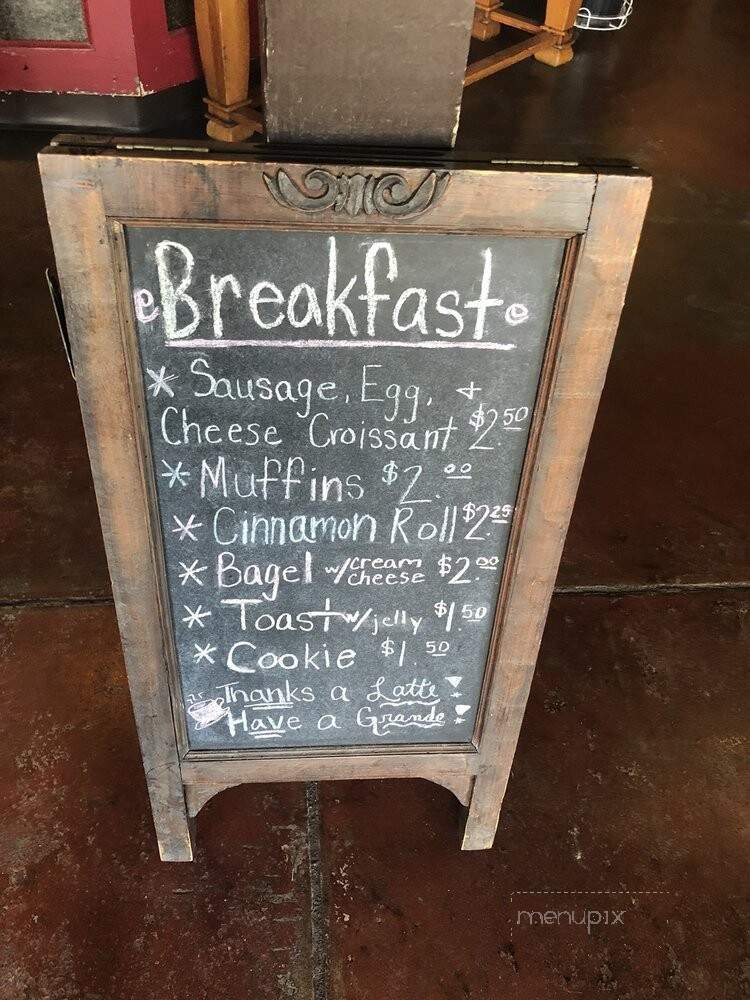 Breakfast
* Sausage, Egg, +
Cheese Croissant $2.50
* Muffins $2.00
* Cinnamon Roll $2.25
* Bagel w/cream cheese $2.00
* Toast w/jelly $1.50
* Cookie $1.50
Thanks a Latte!
Have a Grande!
menupix